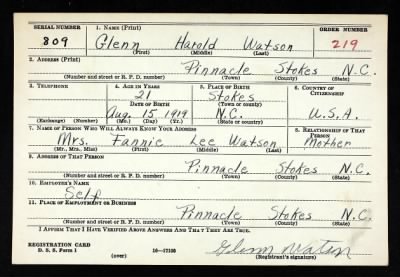 SERIAL NUMBER 1. NAME (Print) ORDER NUMBER
809 Glenn Harold Watson 219
(First) (Middle) (Last)
2. ADDRESS (Print)
Pinnacle Stokes N.C.
(Number and street or R. F. D. number) (Town) (County) (State)
3. TELEPHONE 4. AGE IN YEARS 5. PLACE OF BIRTH 6. COUNTRY OF CITIZENSHIP
21 Stokes
DATE OF BIRTH (Town or county)
Aug. 15 1919 N.C. U.S.A.
(Exchange) (Number) (Mo.) (Day) (Yr.) (State or country)
7. NAME OF PERSON WHO WILL ALWAYS KNOW YOUR ADDRESS 8. RELATIONSHIP OF THAT PERSON
Mrs. Fannie Lee Watson Mother
(Mr., Mrs., Miss) (First) (Middle) (Last)
9. ADDRESS OF THAT PERSON
Pinnacle Stokes N.C.
(Number and street or R. F. D. number) (Town) (County) (State)
10. EMPLOYER'S NAME
Self
11. PLACE OF EMPLOYMENT OR BUSINESS
Pinnacle Stokes N.C.
(Number and street or R. F. D. number) (Town) (County) (State)
I AFFIRM THAT I HAVE VERIFIED ABOVE ANSWERS AND THAT THEY ARE TRUE.
REGISTRATION CARD
D. S. S. Form 1 (over) 16—17105 Glenn Watson
(Registrant's signature)